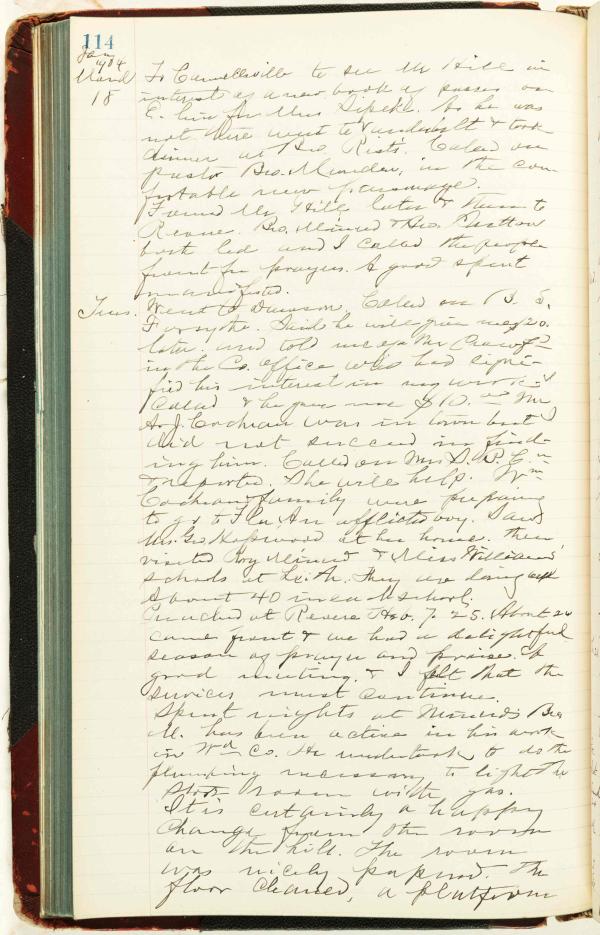 114
Jany
1904
Mond
18
To Connellsville to see Mr Hill in
interest of a new book of passes on
E. him for Miss Lipeke. As he was
not here went to Vanderbilt & took
dinner at Bro. Rists. Called on
pastor Bro. Minder, in the com-
fortable new parsonage.
Found Mr Hill later & then to
Revere. Bro. Minerd & Bro. Bratton
both led and I called the people
front for prayers. A good spirit
manifested.
Tues. Went to Dawson. Called on B. S.
Forsythe. Said he will give me $20.
later. and told me of Mr Crawfd
in the Co. office who had signi-
fied his interest in my work - I
called & he gave me $10. Mr
A. J. Cochran was in town but I
did not succeed in find-
ing him. Called on Mrs S. B. C.
& reported. She will help. Wm
Cochran family were preparing
to go to Fla. An afflicted boy. Saw
Mrs. Geo Hopwood at her home. Then
visited Roy Minerd & Miss Williams'
schools at They are doing well
About 40 in each school.
Preached at Revere 7. 25. About 20
came front & we had a delightful
season of prayer and praise. A
good meeting. & I felt that the
services must continue.
Spent nights at Minerds Bro
M. has been active in his work
in Wd Co. He undertook to do the
plumbing necessary to light the
store room with gas.
It is certainly a happy
change from the room
on the hill. The room
was nicely papered. The
floor cleaned, a platform